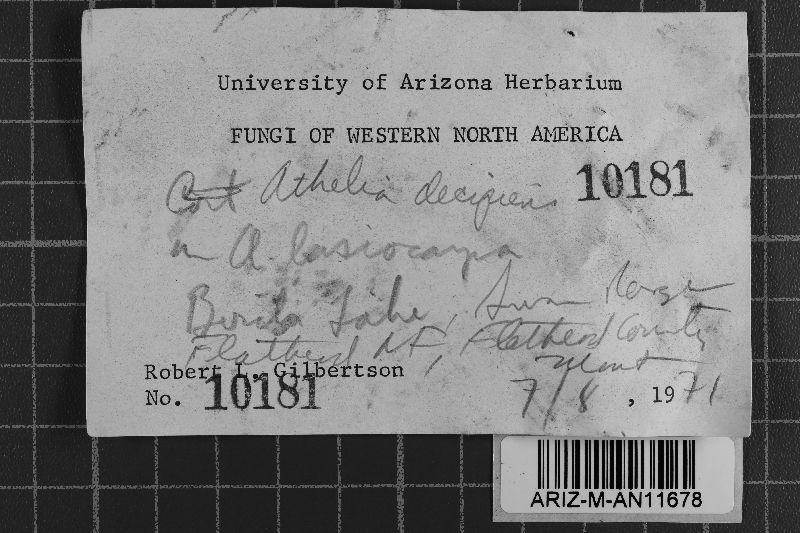 University of Arizona Herbarium
FUNGI OF WESTERN NORTH AMERICA
10181
Cort Athelia decipiens
on A. lasiocarpa
Lake, Swan Range
Flathead NF, Flathead County
Mont
Robert L. Gilbertson
No. 10181
7/8, 1971
ARIZ-M-AN11678